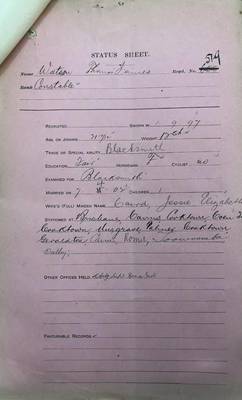 STATUS SHEET.
514
Name Watson Thomas James Regd. No.
Rank Constable
RECRUITED SWORN IN 1 9 97
AGE ON JOINING WEIGHT
TRADE OR SPECIAL ABILITY Blacksmith
EDUCATION Fair HORSEMAN CYCLIST no
EXAMINED FOR Blacksmith
MARRIED ON 7 02 CHILDREN 1
WIFE'S (FULL) MAIDEN NAME Caird, Jessie Elizabeth
STATIONED AT Brisbane, Cairns, Cooktown, Coen
Cooktown, Musgrave, Palmer, Cooktown
Roma,
Dalby,
OTHER OFFICES HELD
FAVOURABLE RECORDS